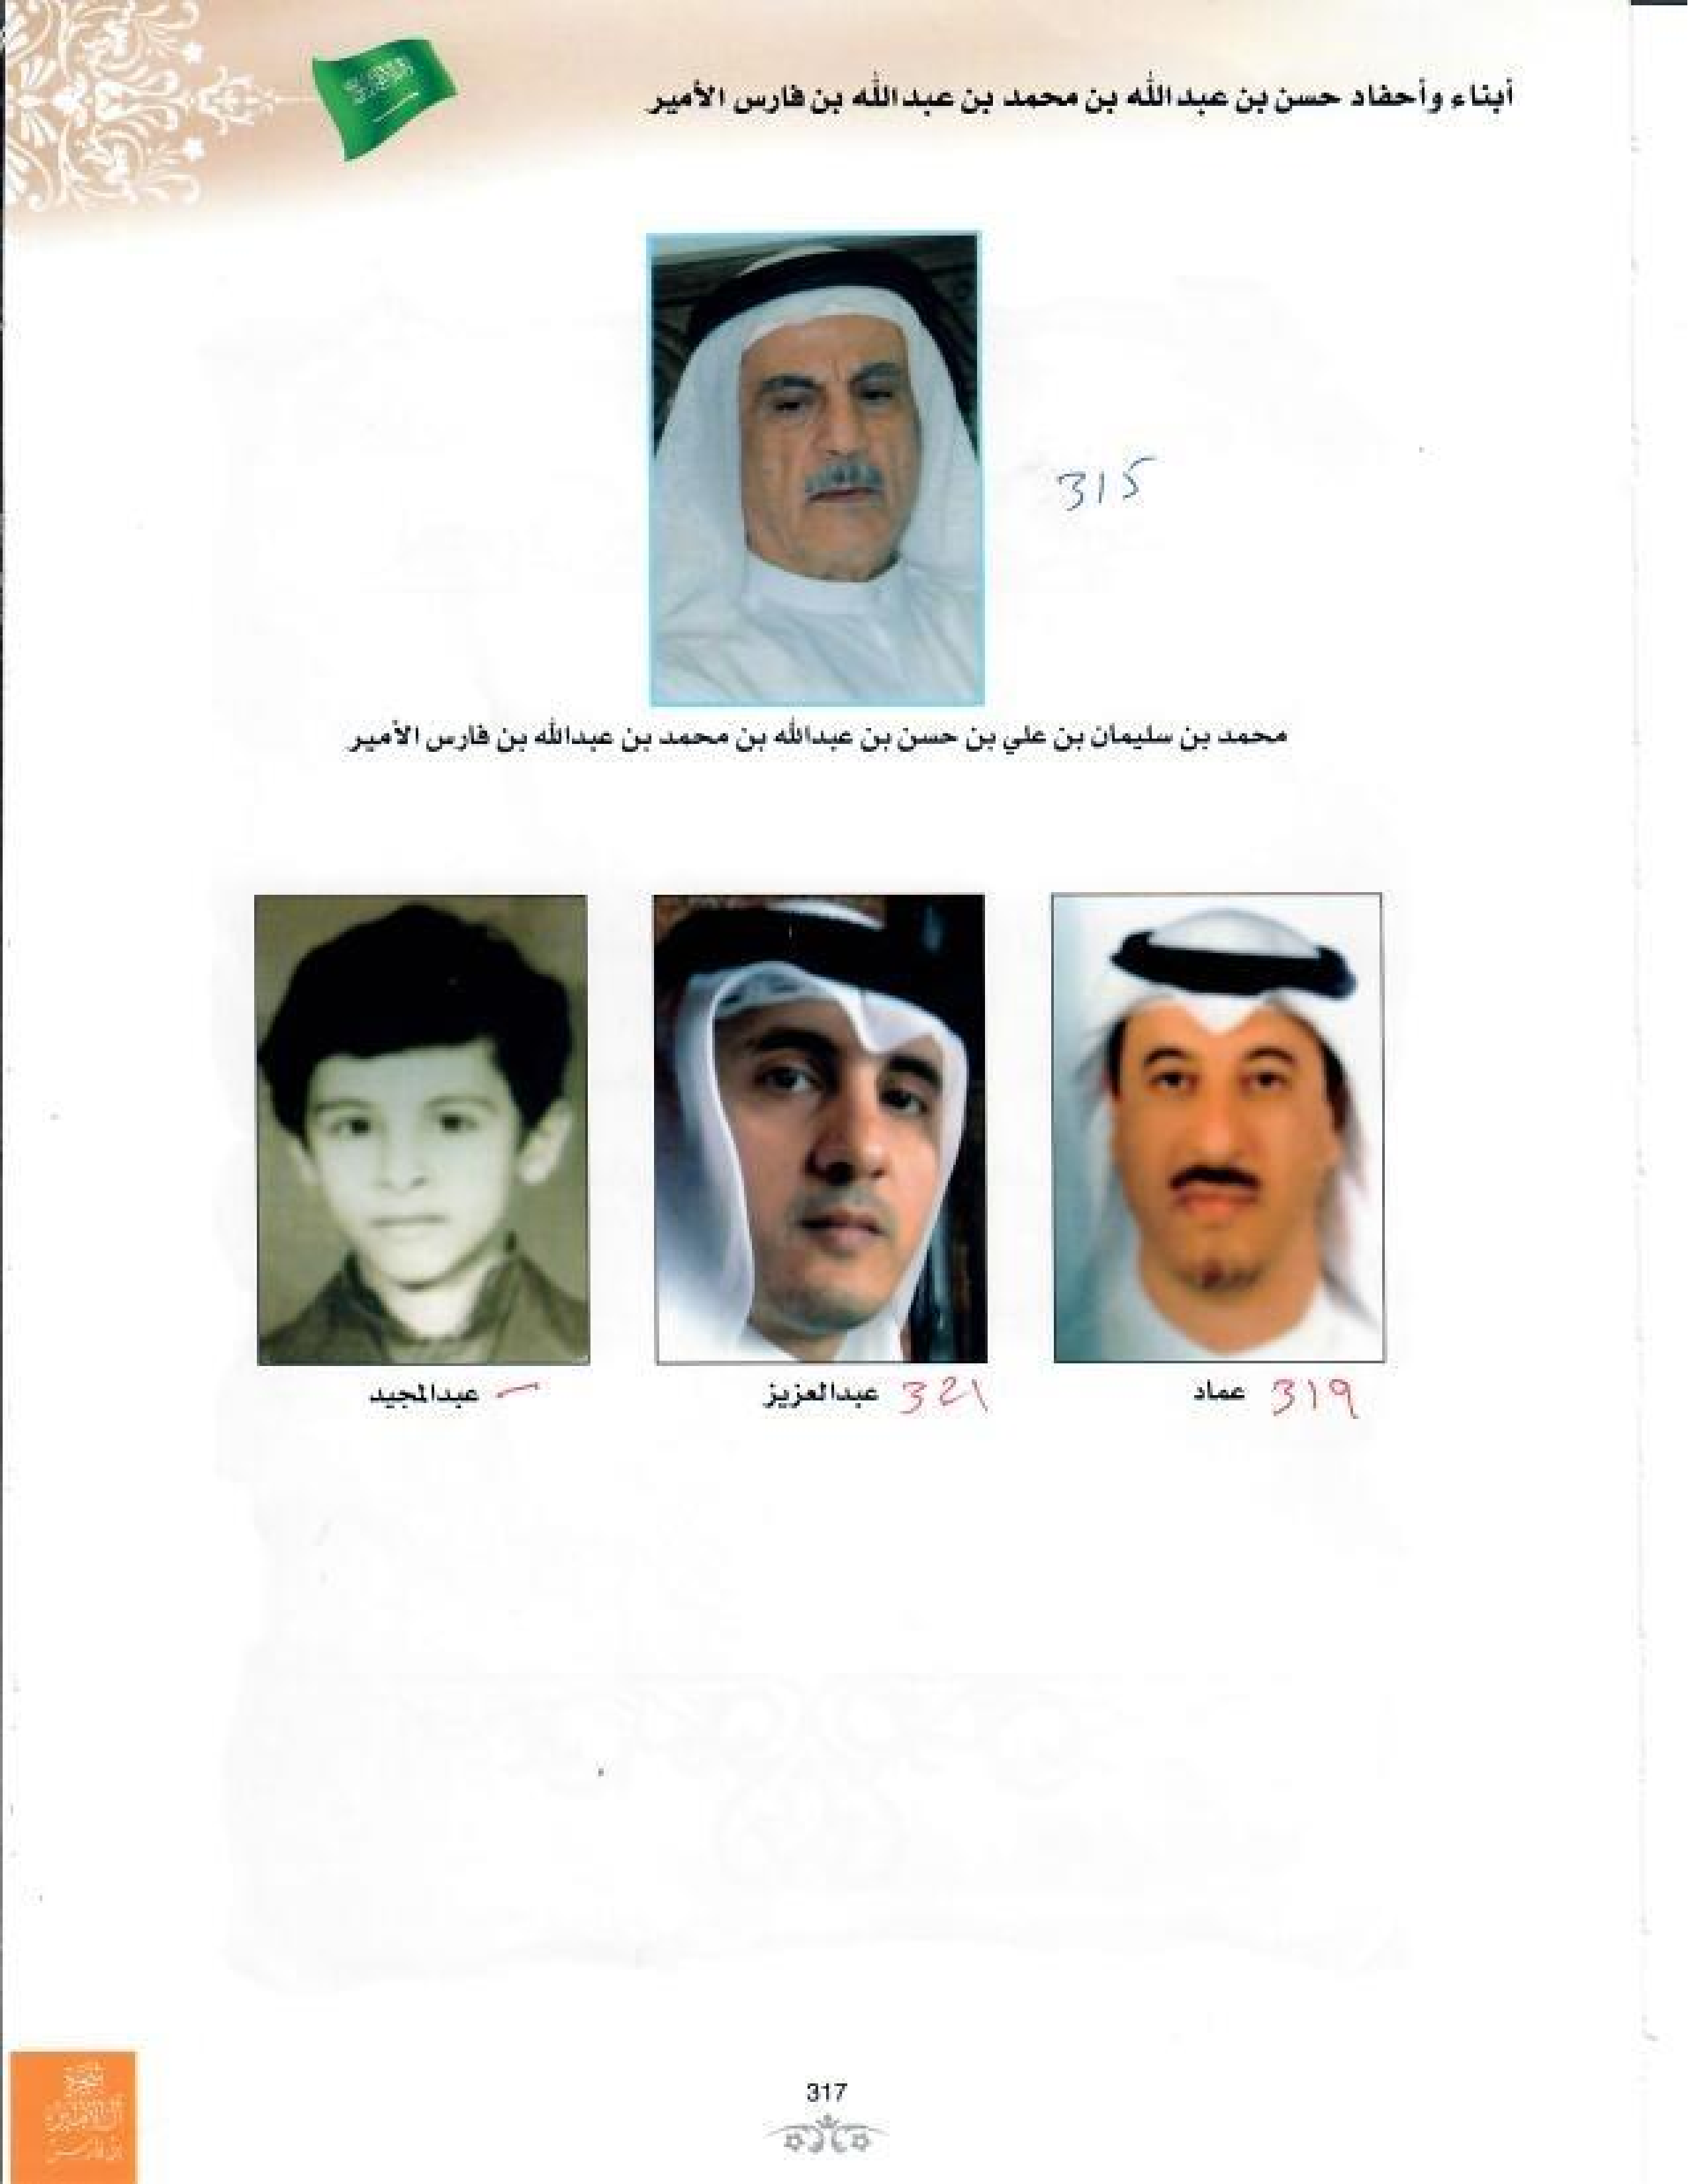 أبناء وأحفاد حسن بن عبدالله بن محمد بن عبدالله بن فارس الأمير
315
محمد بن سليمان بن علي بن حسن بن عبدالله بن محمد بن عبدالله بن فارس الأمير
319 عماد
321 عبدالعزيز
عبدالمجيد
317